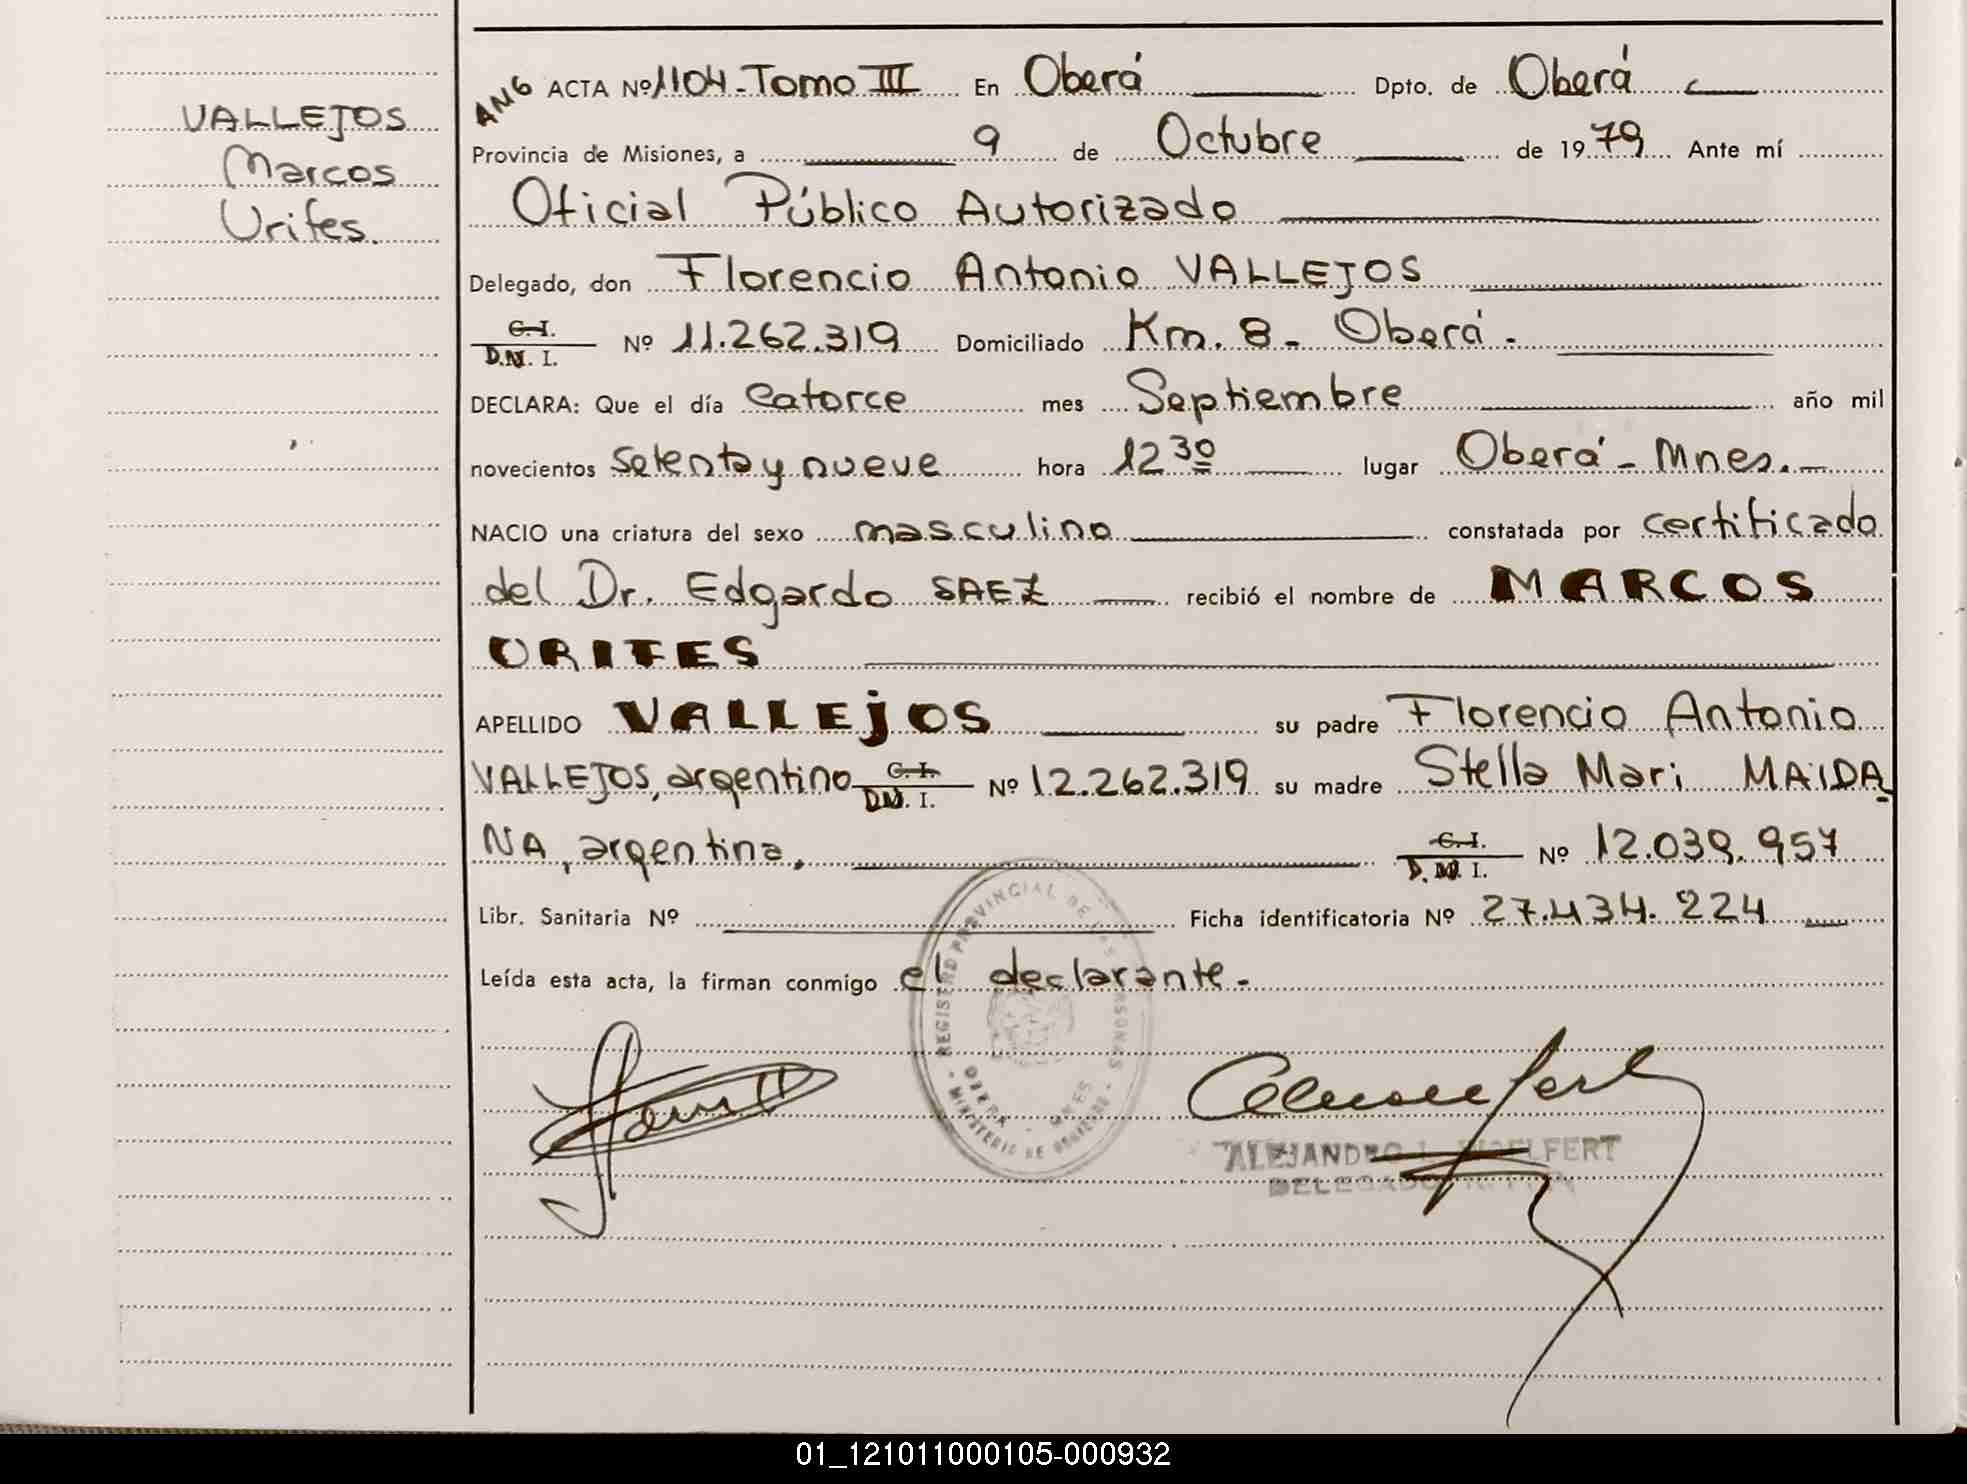 VALLEJOS
Marcos
Urifes.
ANG ACTA Nº 1104-Tomo III En Oberá Dpto. de Oberá
Provincia de Misiones, a 9 de Octubre de 1979 Ante mí
Oficial Público Autorizado
Delegado, don Florencio Antonio VALLEJOS
C.I.
D.N.I. Nº 11.262.319 Domiciliado Km. 8- Oberá.
DECLARA: Que el día catorce mes Septiembre año mil
novecientos setenta y nueve hora 12 30 lugar Oberá-Mnes.-
NACIO una criatura del sexo masculino constatada por certificado
del Dr. Edgardo SAEZ recibió el nombre de MARCOS
URIFES
APELLIDO VALLEJOS su padre Florencio Antonio
VALLEJOS, argentino C.I.
D.N.I. Nº 12.262.319 su madre Stella Mari MAIDA
NA, argentina, C.I.
D.N.I. Nº 12.039.957
Libr. Sanitaria Nº Ficha identificatoria Nº 27.434.224
Leída esta acta, la firman conmigo el declarante.-
REGISTRO PROVINCIAL DE LAS PERSONAS
OBERA - MNES
MINISTERIO DE GOBIERNO
ALEJANDRO
DELEGADO
01_121011000105-000932